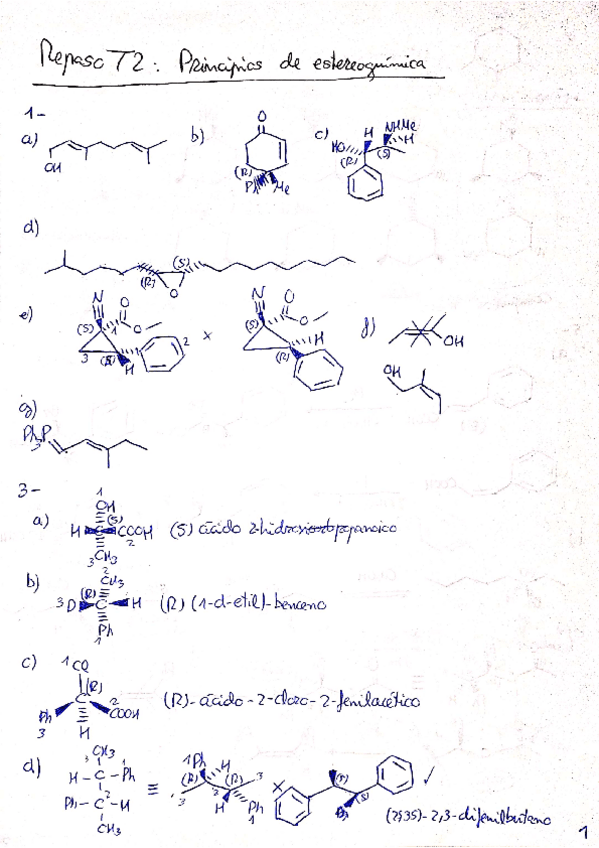 Repaso T2: Principios de estereoquímica
1-
a)
OH
b)
O
(R)
Ph
Me
c)
H
NHMe
HO
H
(R)
(S)
d)
(S)
(R)
O
e)
N
O
(S)
1
O
2
3
H
x
N
O
(S)
O
H
(R)
f)
OH
OH
g)
Ph3P
3-
a)
1
OH
(S)
H C COOH
2
3 CH3
(S) ácido 2-hidroxipropanoico
b)
2
CH3
(R)
3D C H
Ph
1
(R) (1-d-etil)-benceno
c)
1 Cl
(R)
C
Ph
3
COOH
2
H
(R)-ácido-2-cloro-2-fenilacético
d)
3
CH3
1
H-C-Ph
2
Ph-C-H
CH3
≡
1Ph
H
(R)
(R)
3
2
3
H
Ph
1
x
(S)
✓
(2S3S)-2,3-difenilbutano
1